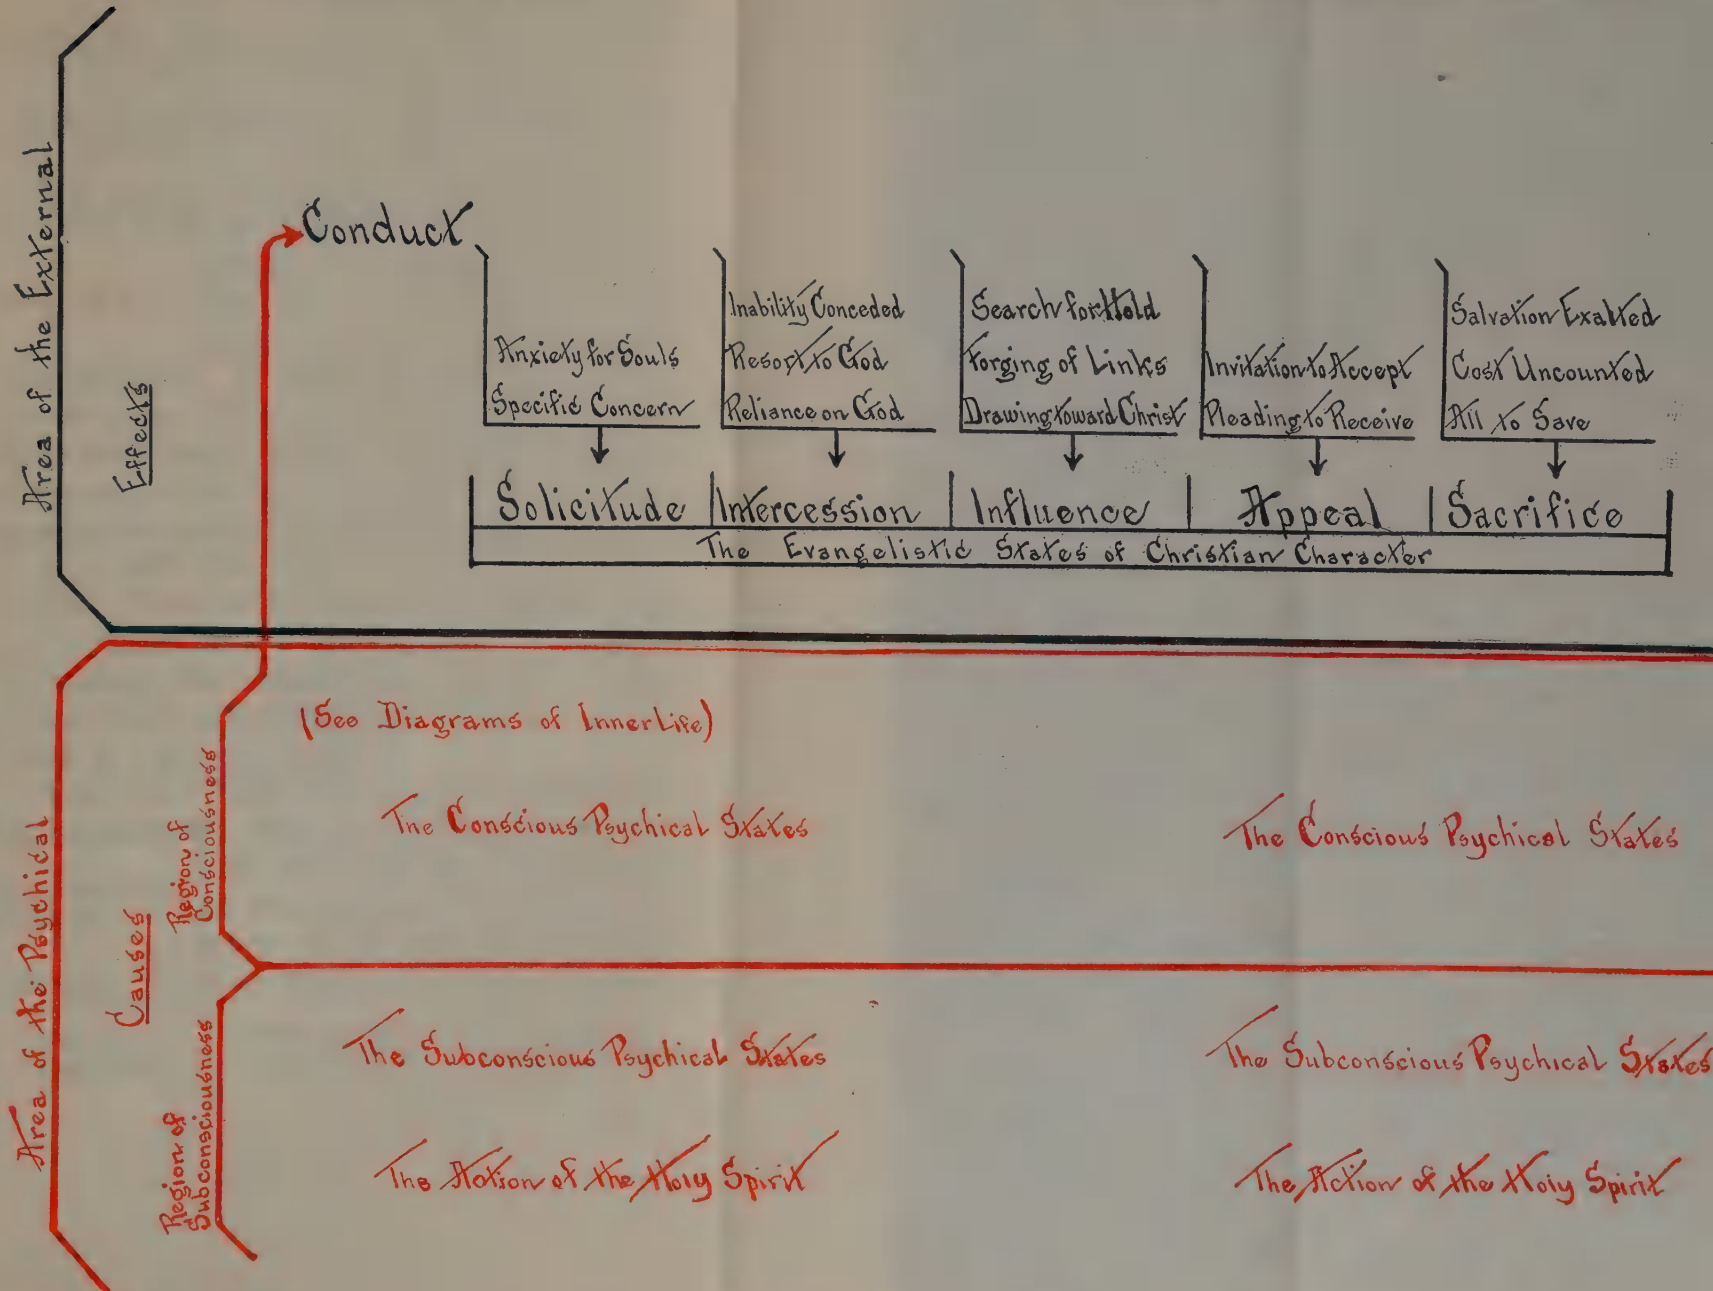 Area of the External
Effects
Conduct
Anxiety for Souls
Specific Concern
Inability Conceded
Resort to God
Reliance on God
Search for Hold
Forging of Links
Drawing toward Christ
Invitation to Accept
Pleading to Receive
Salvation Exalted
Cost Uncounted
All to Save
Solicitude
Intercession
Influence
Appeal
Sacrifice
The Evangelistic States of Christian Character
Area of the Psychical
Causes
Region of
Consciousness
(See Diagrams of Inner Life)
The Conscious Psychical States
The Conscious Psychical States
Region of
Subconsciousness
The Subconscious Psychical States
The Subconscious Psychical States
The Action of the Holy Spirit
The Action of the Holy Spirit